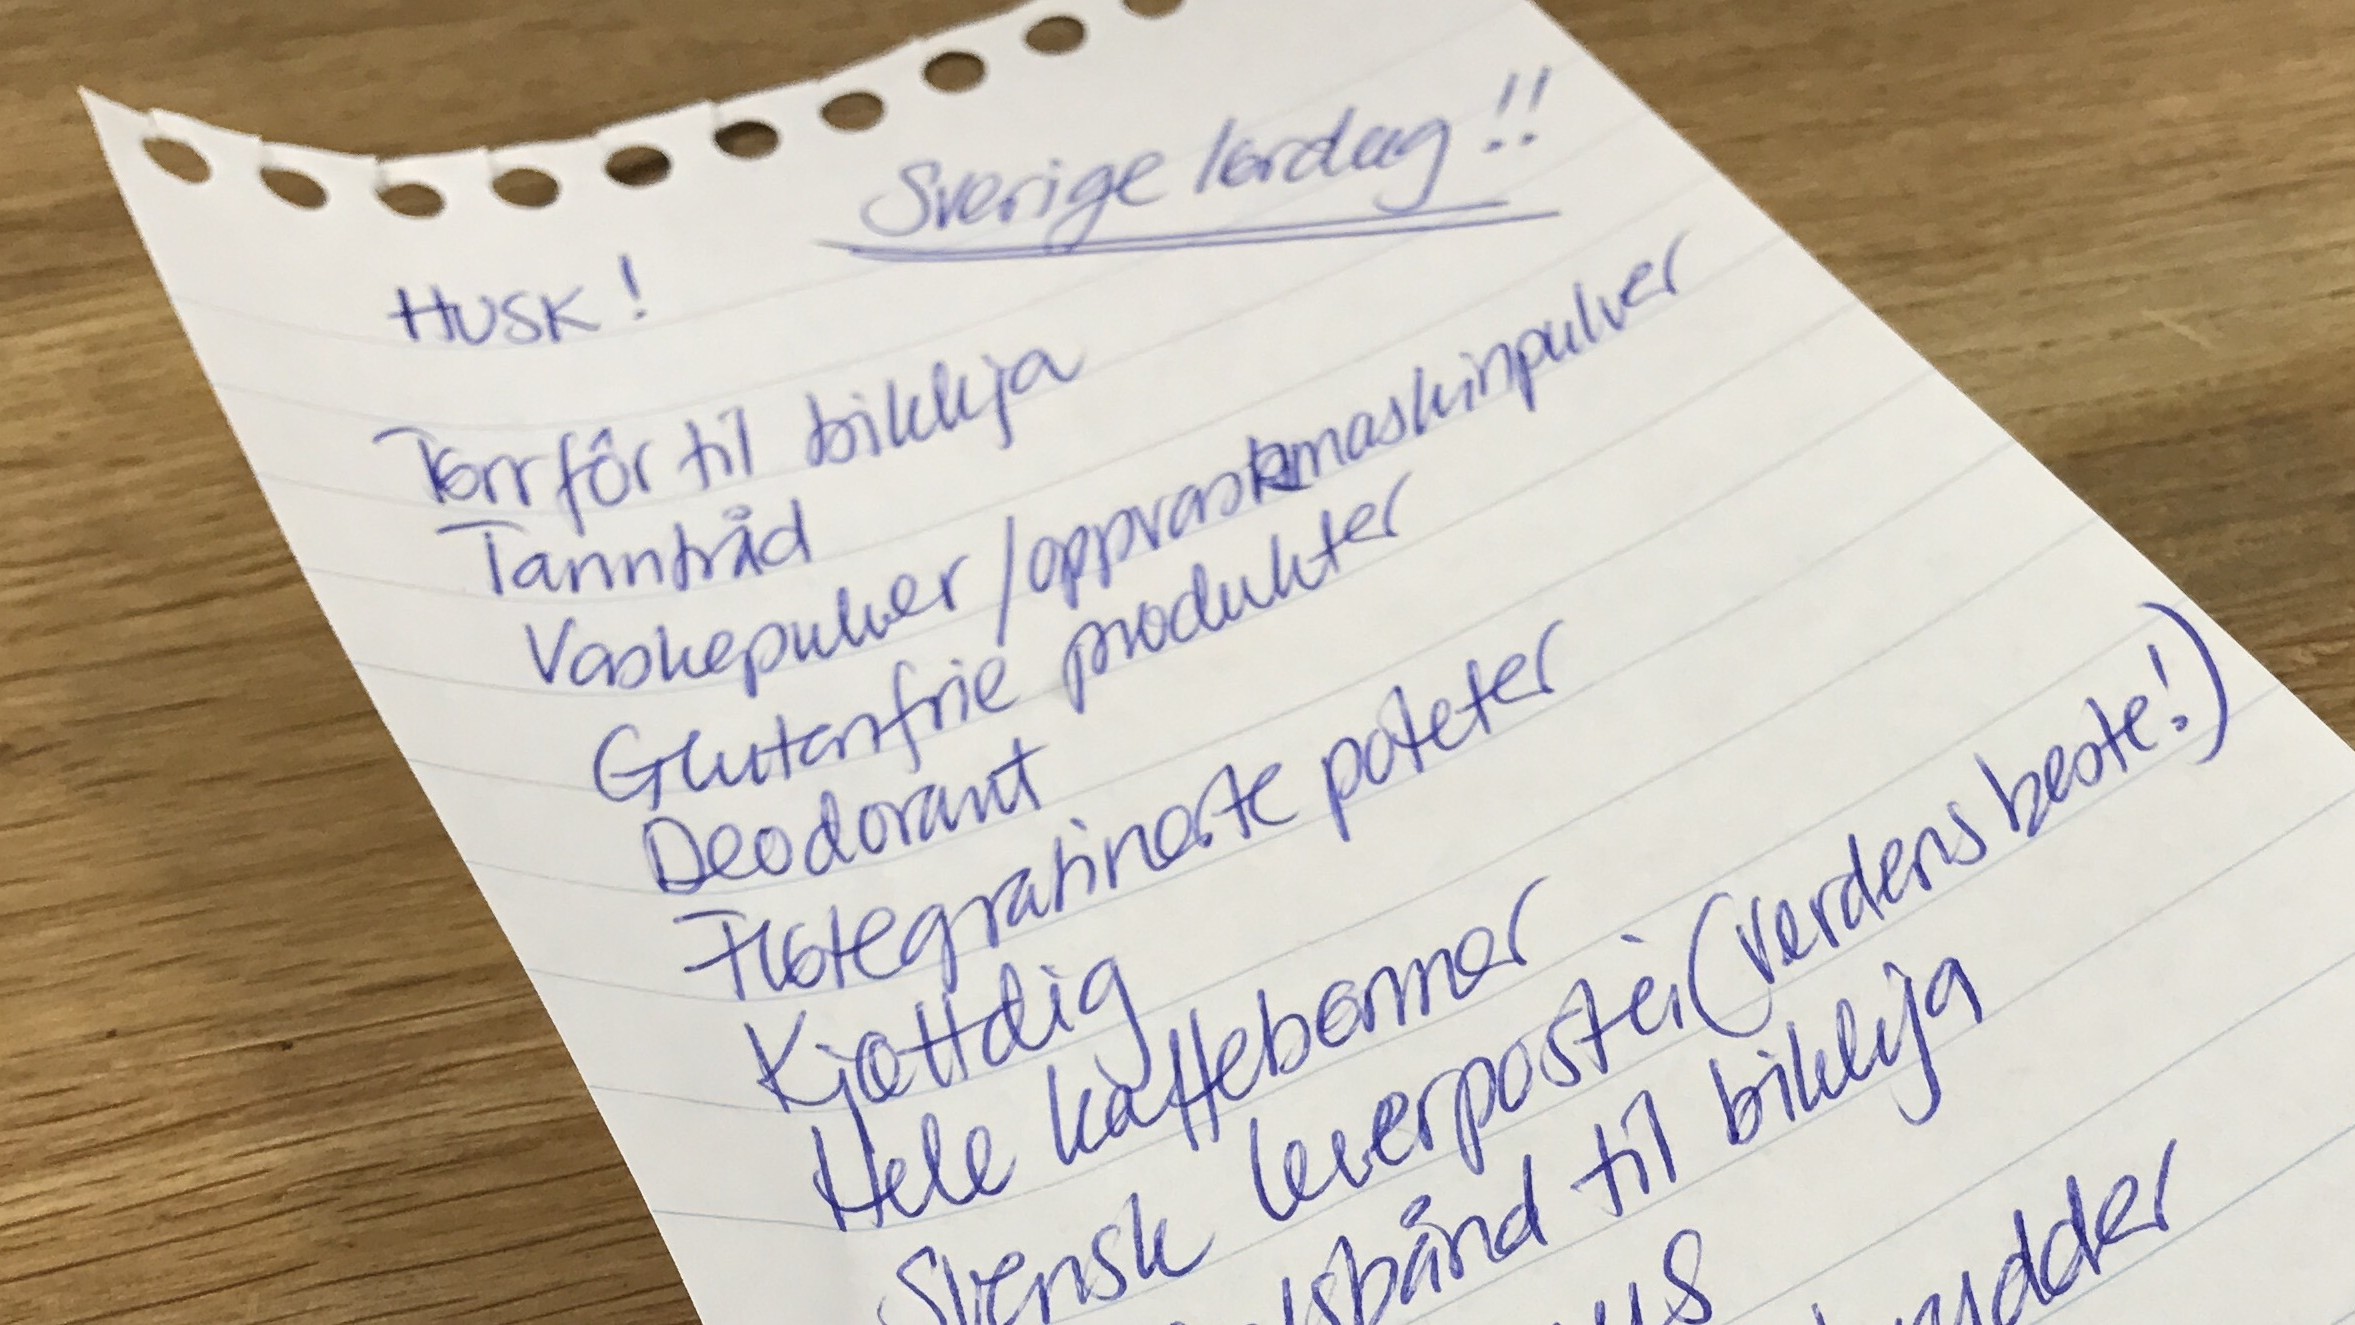 Sverige lørdag!!
HUSK!
Tørrfôr til bikkja
Tanntråd
Vaskepulver/oppvaskmaskinpulver
Glutenfrie produkter
Deodorant
Fløtegratinerte poteter
Kjøttdig
Hele kaffebønner
Svensk leverpostei (verdens beste!)
til bikkja